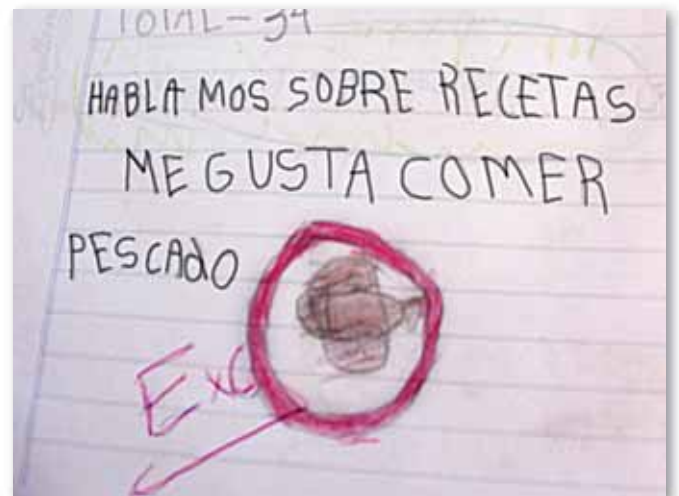 TOTAL - 34
HABLAMOS SOBRE RECETAS
ME GUSTA COMER
PESCADO
Exc